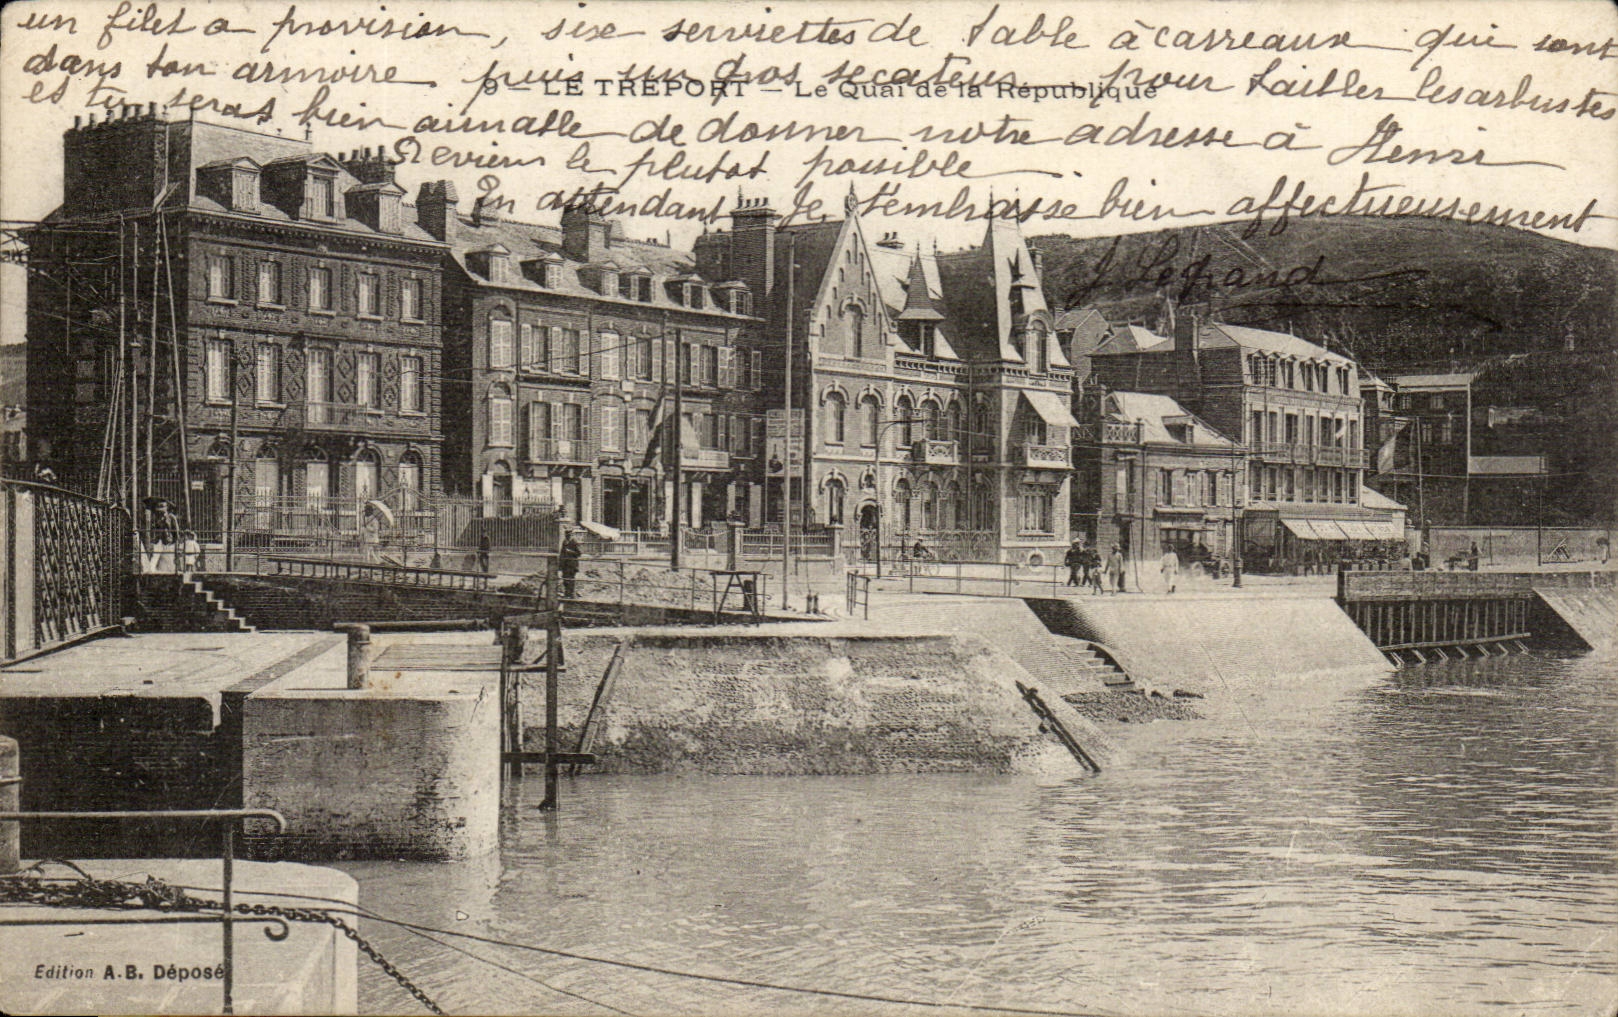 un filet a provision, six serviettes de table à carreaux qui sont
dans ton armoire puis un gros secateur pour tailler les arbustes
9 — LE TRÉPORT — Le Quai de la République
et tu seras bien aimable de donner notre adresse à Henri
Reviens le plutot possible
En attendant Je t'embrasse bien affectueusement
J. Legrand
Edition A.B. Déposé